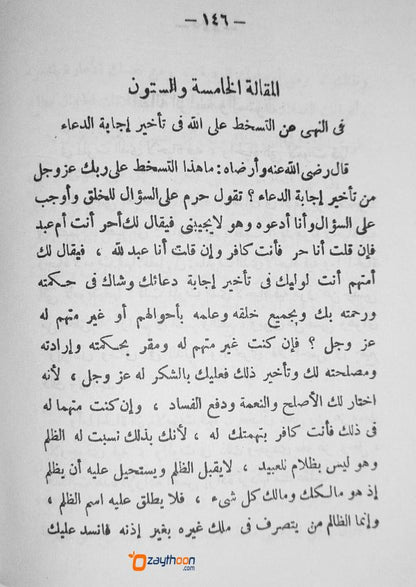 — ١٤٦ —
المقالة الخامسة والستون
فى النهى عن التسخط على الله فى تأخير إجابة الدعاء
قال رضى الله عنه وأرضاه : ما هذا التسخط على ربك عز وجل
من تأخير إجابة الدعاء ؟ تقول حرم على السؤال للخلق وأوجب
على السؤال وأنا أدعوه وهو لايجيبنى فيقال لك أحر أنت أم عبد
فإن قلت أنا حر فأنت كافر وإن قلت أنا عبد لله ، فيقال لك
أمتهم أنت لوليك فى تأخير إجابة دعائك وشاك فى حكمته
ورحمته بك وبجميع خلقه وعلمه بأحوالهم أو غير متهم له
عز وجل ؟ فإن كنت غير متهم له ومقر بحكمته وإرادته
ومصلحته لك وتأخير ذلك فعليك بالشكر له عز وجل ، لأنه
اختار لك الأصلح والنعمة ودفع الفساد ، وإن كنت متهما له
فى ذلك فأنت كافر بتهمتك له ، لأنك بذلك نسبت له الظلم
وهو ليس بظلام للعبيد ، لايقبل الظلم ويستحيل عليه أن يظلم
إذ هو مالكك ومالك كل شىء ، فلا يطلق عليه اسم الظلم ،
وإنما الظالم من يتصرف فى ملك غيره بغير إذنه فانسد عليك
Ozaythoon
.com